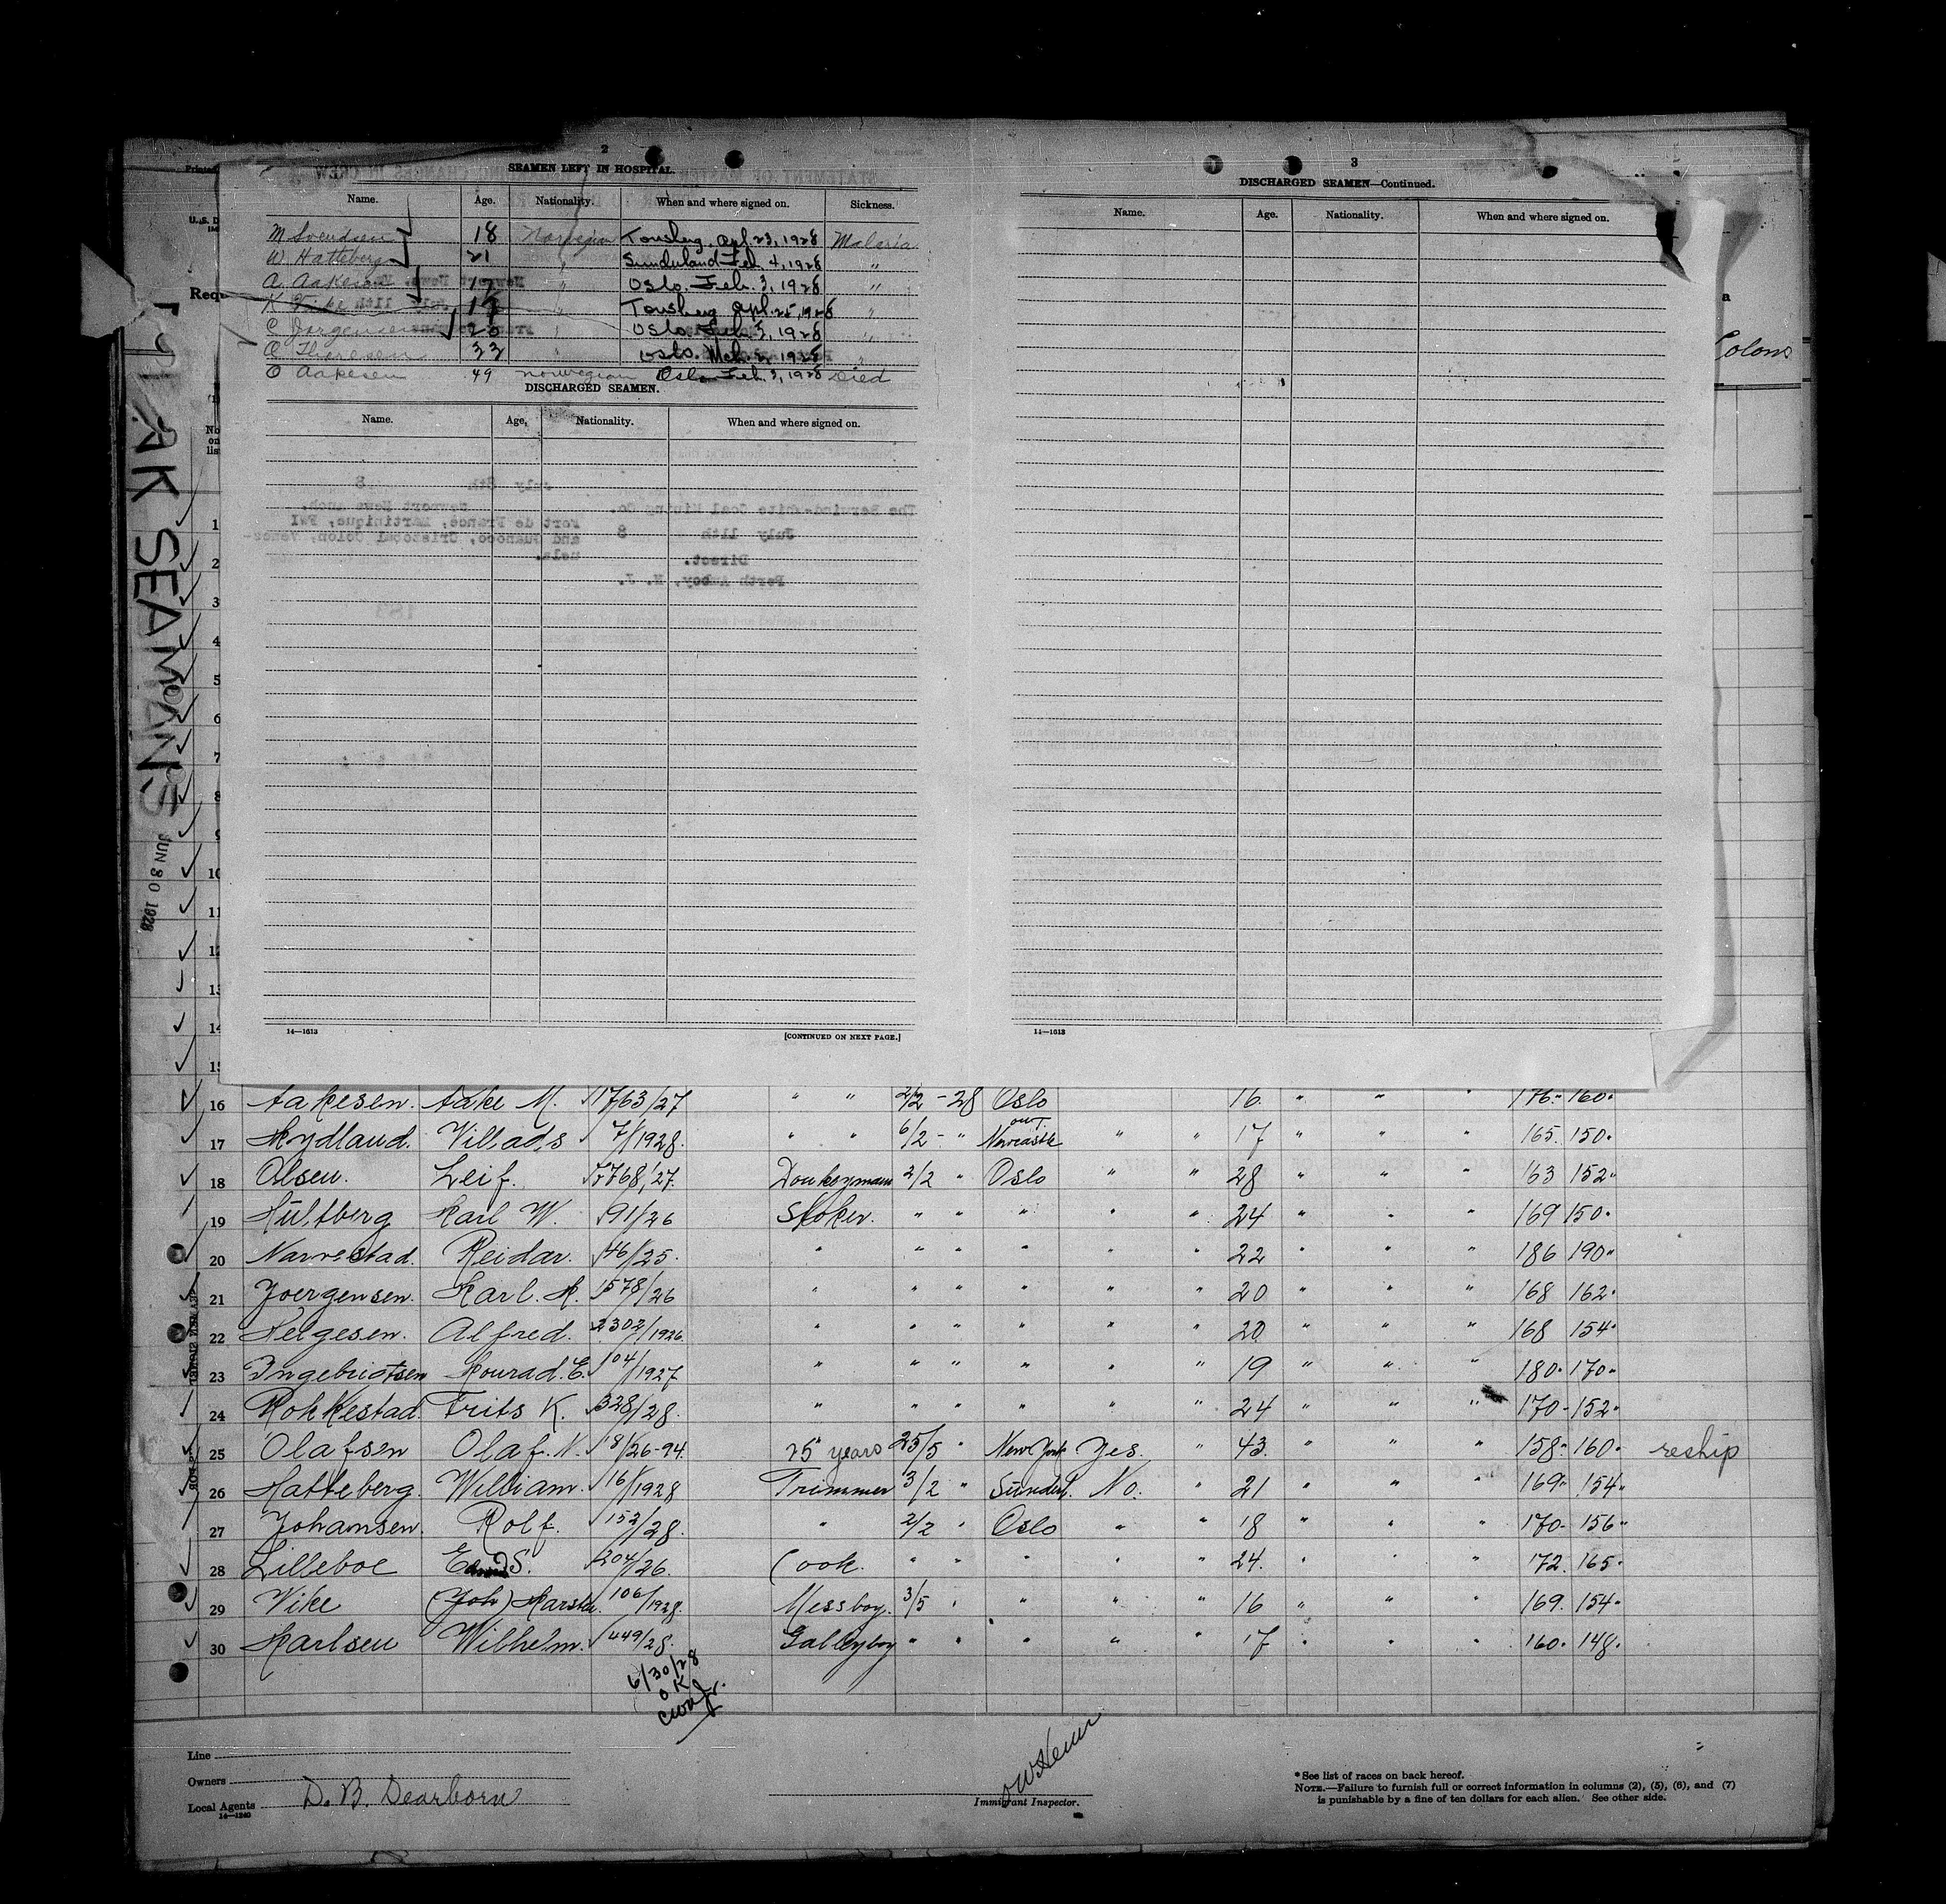 2
SEAMEN LEFT IN HOSPITAL.
Name. Age. Nationality. When and where signed on. Sickness.
M Svendsen 18 Norwegian Tonsberg Apl. 23, 1928 Malaria
W Hatteberg 21 " Sunderland Feb. 4, 1928 "
A Aakesen 17 " Oslo. Feb. 3, 1928 "
K Vike Tonsberg Apl. 25, 1928 "
C Jorgensen 20 " Oslo Feb. 3, 1928 "
O Thoresen 33 " Oslo. Mch. 2, 1928 "
O Aakesen 49 Norwegian Oslo Feb. 3, 1928 Died
DISCHARGED SEAMEN.
Name. Age. Nationality. When and where signed on.
14—1613
[CONTINUED ON NEXT PAGE.]
3
DISCHARGED SEAMEN—Continued.
Name. Age. Nationality. When and where signed on.
14—1613
Printed
U. S. D
Requ
a
Colons
No
on
lis
AK SEAMANS
JUN 30 1928
1
2
3
4
5
6
7
8
9
10
11
12
13
14
15
16 Aakesen. Aake M. 1763/27 " " 2/2 - 28 Oslo 16. " " " 176. 160.
17 Hydland. Villads 7/1928. " " 6/2 - " Newcastle " " 17 " " " 165. 150.
18 Olsen. Leif. 768/27. Donkeyman 2/2 " Oslo " " 28 " " " 163 152.
19 Hultberg Karl W. 91/26 Stoker. " " " " " 24 " " " 169 150.
20 Narrestad. Reidar. 46/25. " " " " " " 22 " " " 186 190.
21 Joergensen. Karl. H. 1578/26 " " " " " " 20 " " " 168 162.
22 Helgesen. Alfred. 2302/1926. " " " " " " 20 " " " 168 154.
23 Ingebrigtsen Konrad. E. 104/1927 " " " " " " 19 " " " 180. 170.
24 Rokkestad. Frits K. 328/28. " " " " " " 24 " " " 170 - 152.
25 Olafsen Olaf. N. 18/26-94. 25 years 25/5 " New York Yes " 43. " " " 158. 160. reship
26 Hatteberg. William. 16/1928 Trimmer 3/2 " Sunderl. No. " 21 " " " 169. 154.
27 Johansen. Rolf. 152/28. " 2/2 " Oslo " " 18 " " " 170. 156.
28 Lilleboe S. 204/26. Cook. " " " " " 24. " " " 172. 165.
29 Vike (Joh) Karsten. 106/1928. Messboy. 3/5 " " " " 16 " " " 169. 154.
30 Karlsen Wilhelm. 449/28. Galleyboy " " " " " 17 " " " 160. 148.
6/30/28
OK
Line
Owners
Local Agents D. B. Dearborn
14—1240
Immigrant Inspector.
* See list of races on back hereof.
NOTE.—Failure to furnish full or correct information in columns (2), (5), (6), and (7)
is punishable by a fine of ten dollars for each alien. See other side.